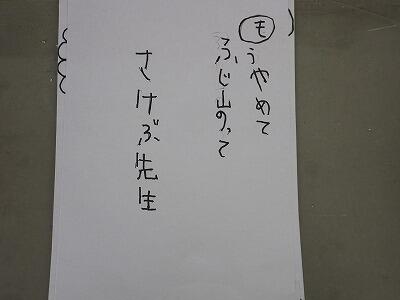 もうやめて
ふじ山のって
さけぶ先生